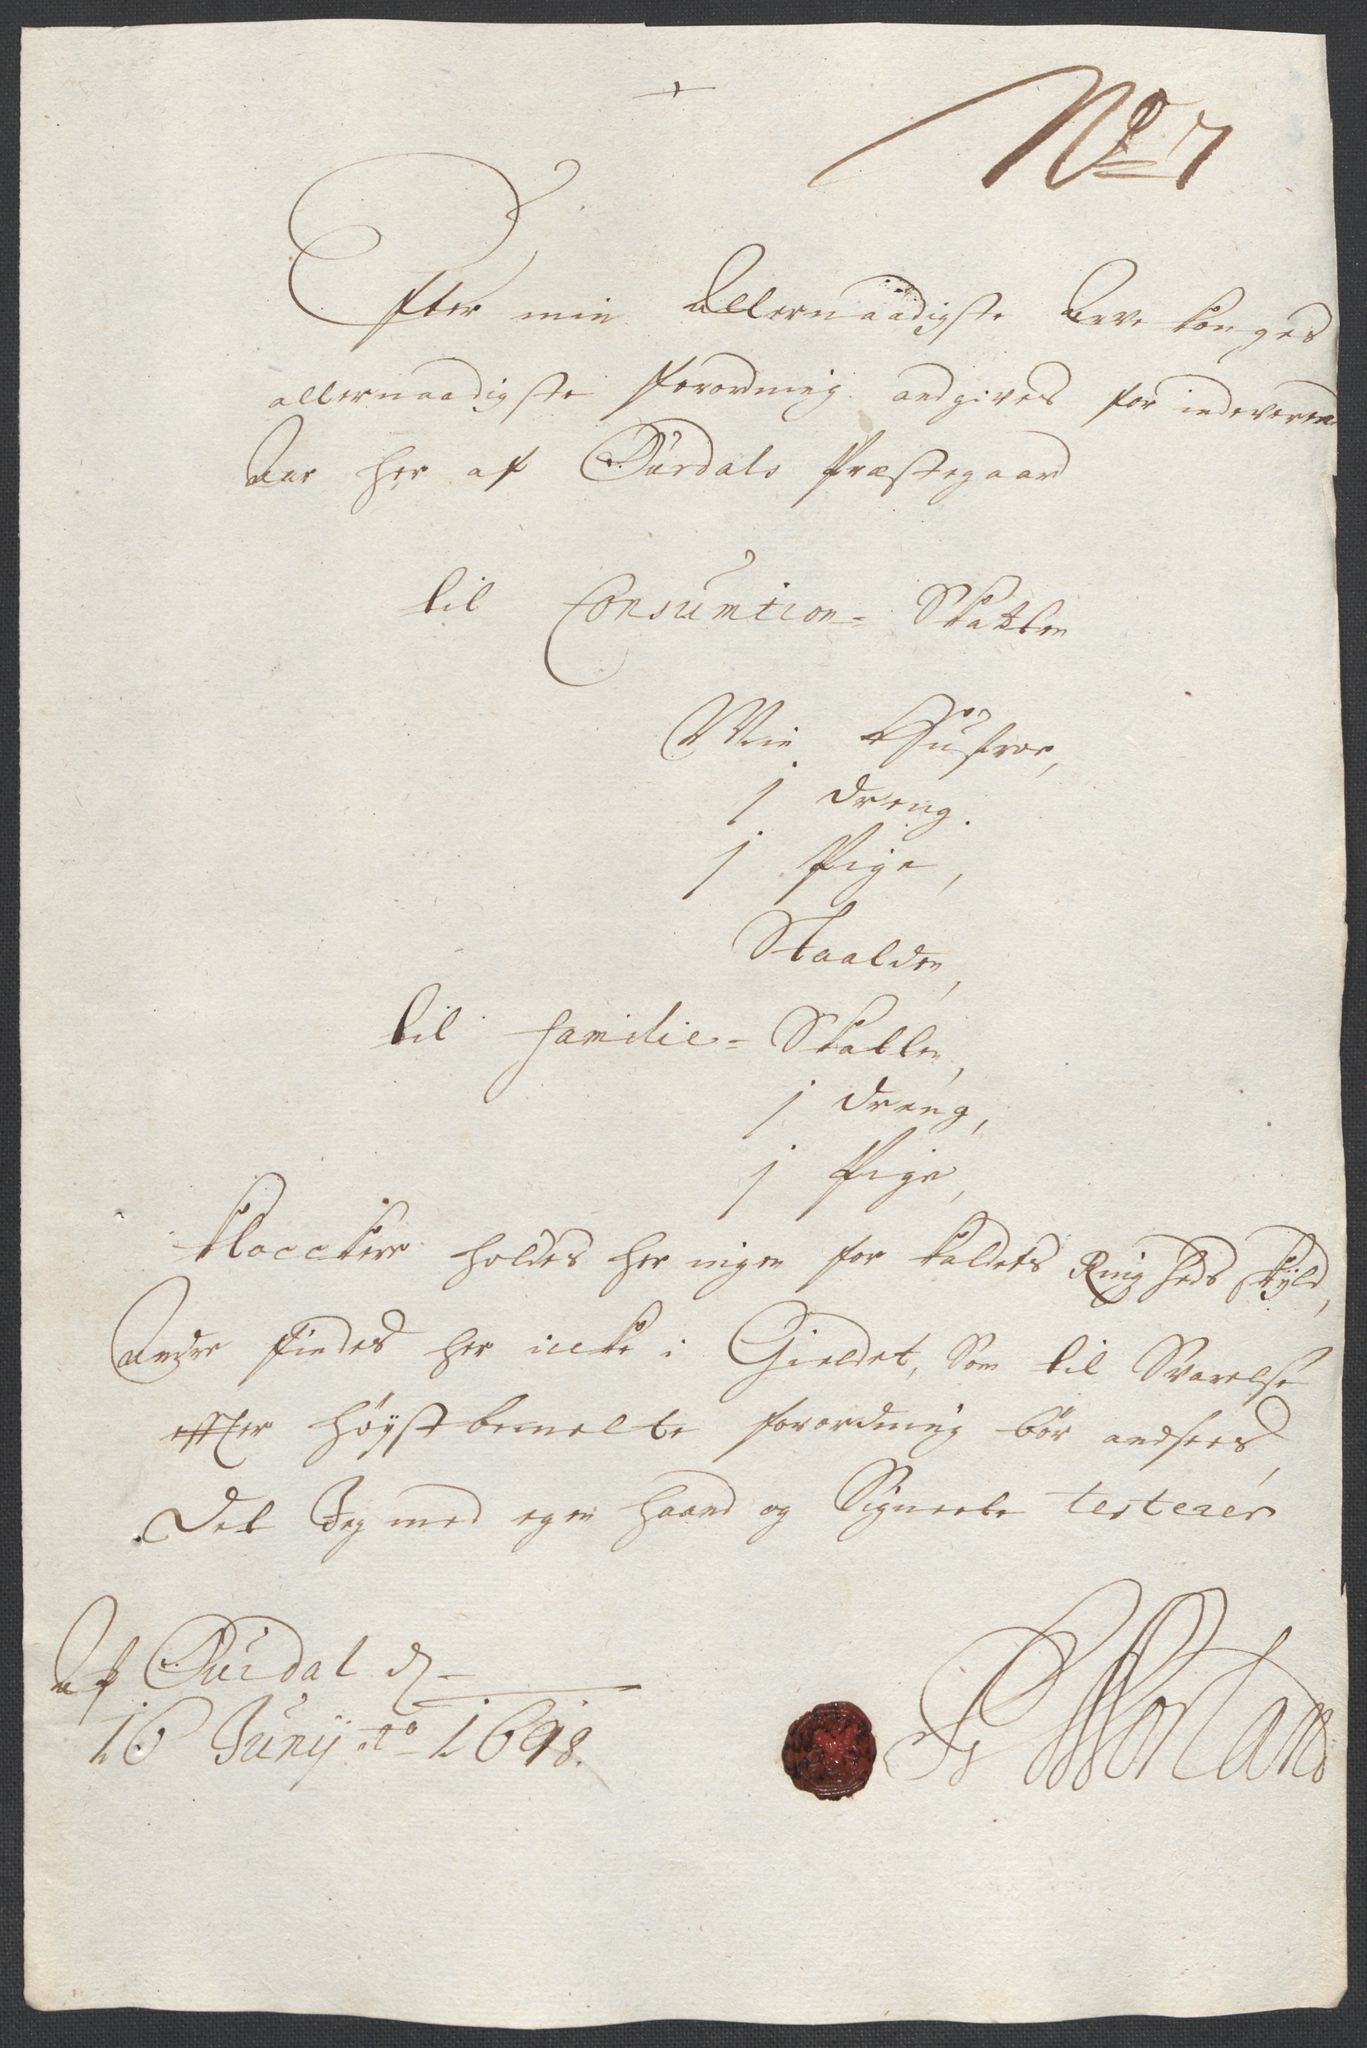 No 7
Efter min Allernaadigste Arve Konges
allernaadigste forordning andgives for indeveren
Aar her af Øursdals Præstegaar
til Consumtion= Skatten
Min Hustroe,
j dreng.
j Pige,
Staalden,
til familie= Skatten,
j dreng,
j Pige,
Kloccker holdes her ingen for Kaldets Ringheds skyld,
Andre findes her icke i Gieldet, som til Svarelse
effter høyst bemelte forordning bør andsees,
Det Jeg med egen haand og Signete testerer
Af Øursdal d
16 Junij Ao 1698.